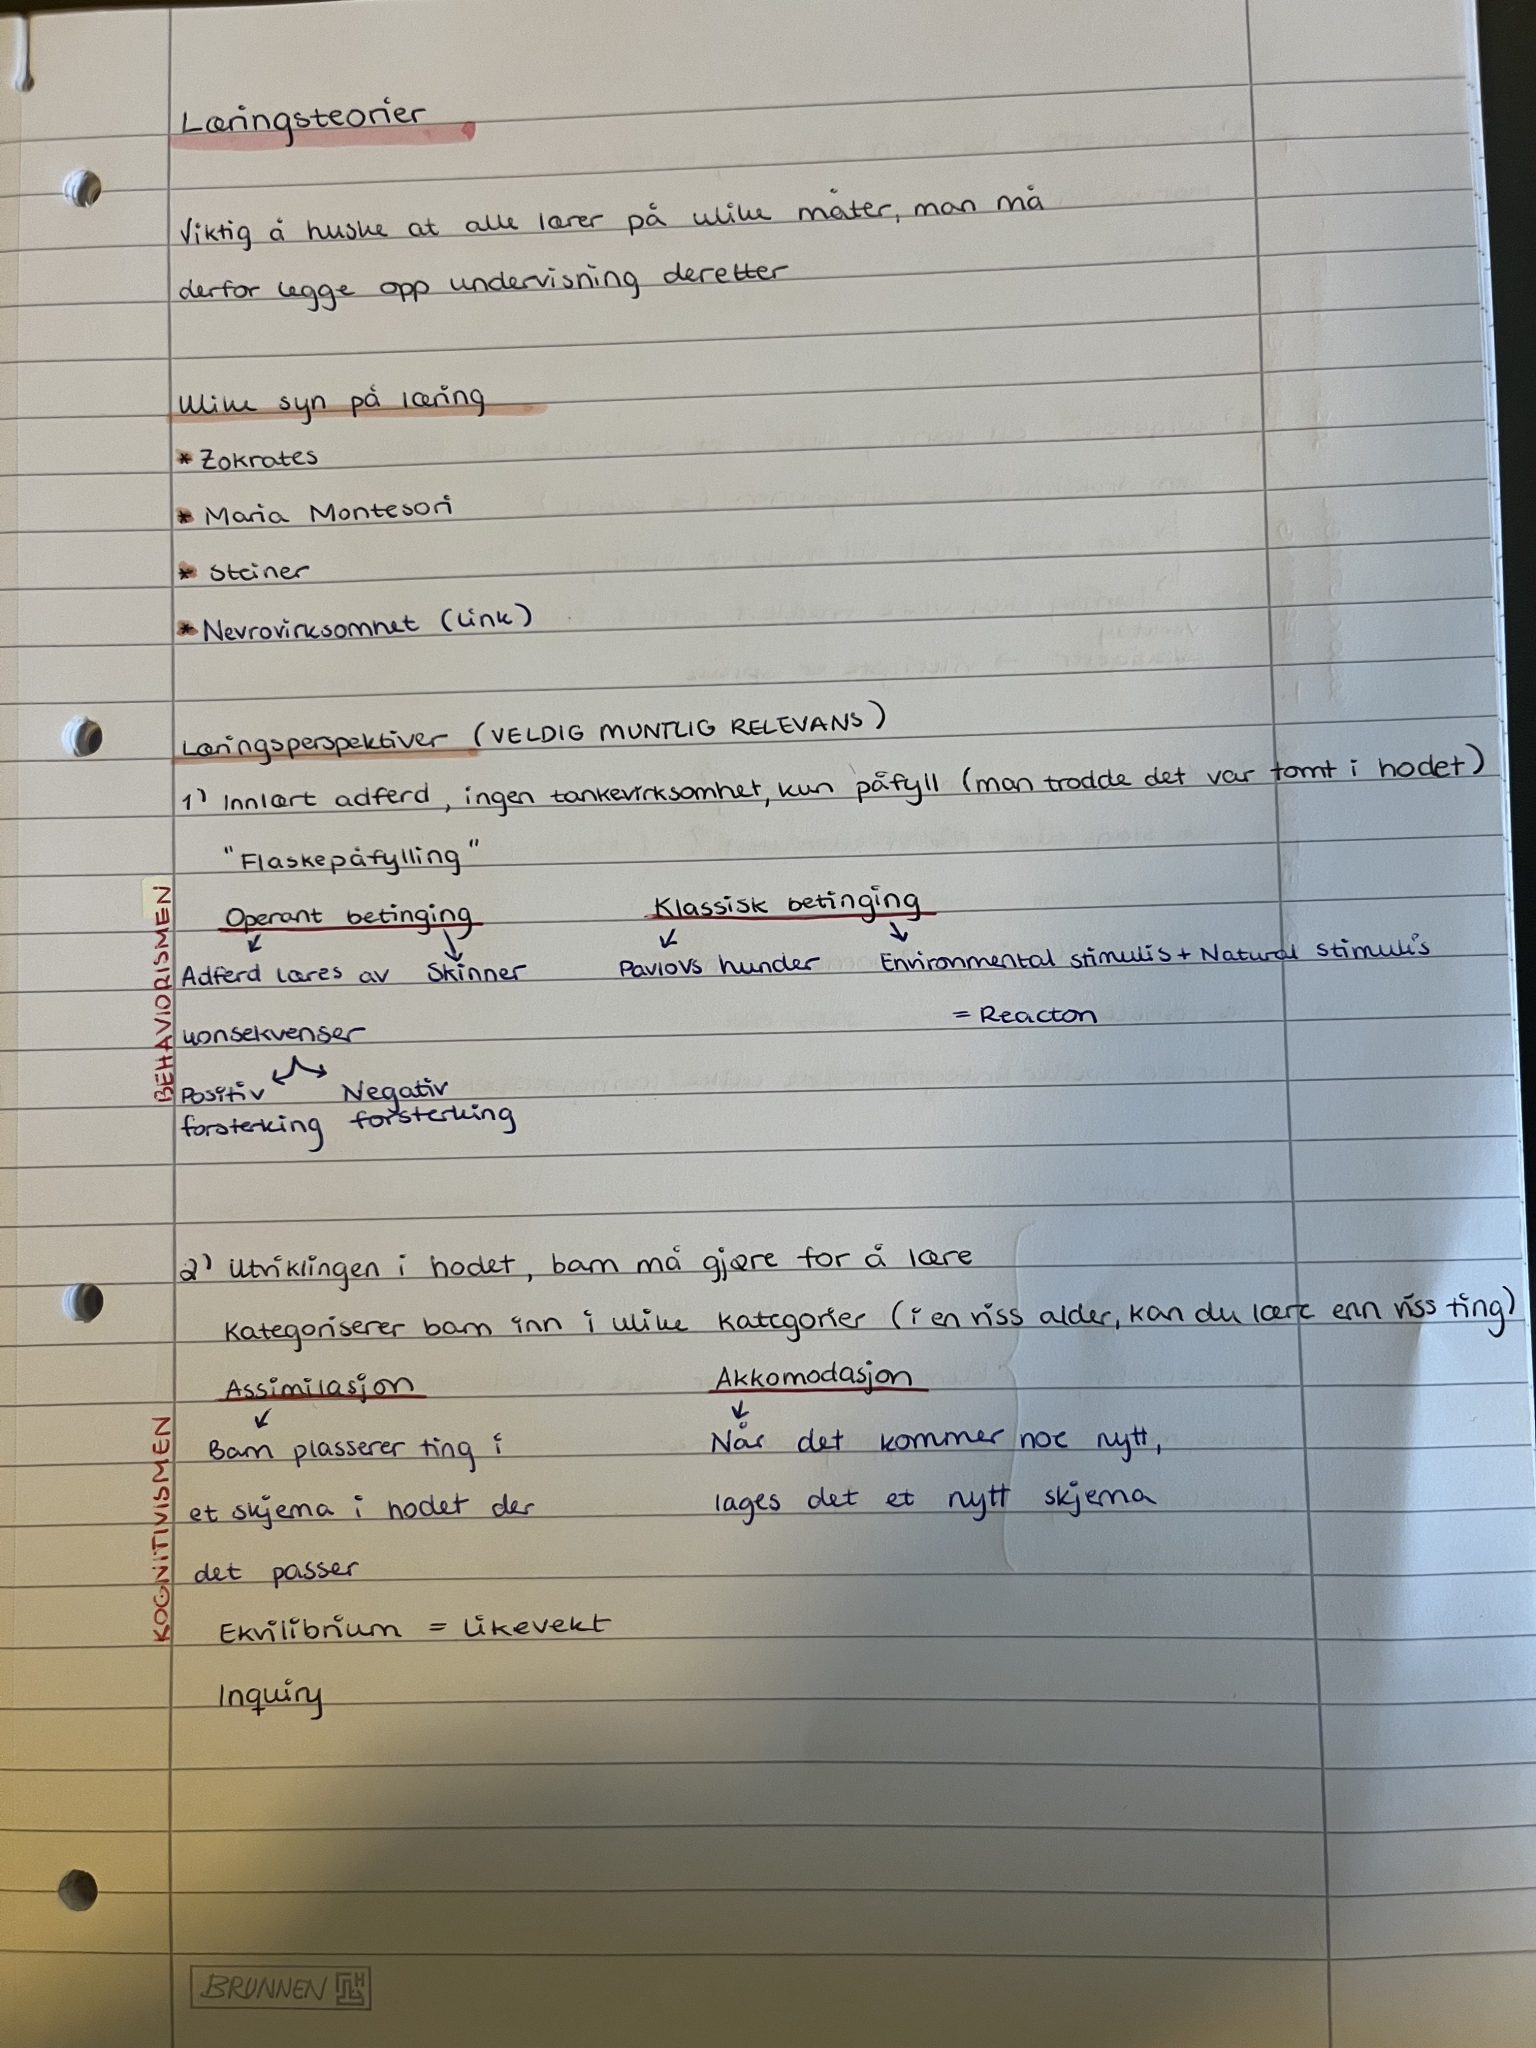 Læringsteorier
Viktig å huske at alle lærer på ulike måter, man må
derfor legge opp undervisning deretter
Ulike syn på læring
* Zokrates
* Maria Montesori
* Steiner
* Nevrovirksomhet (Link)
Læringsperspektiver (VELDIG MUNTLIG RELEVANS)
1) Innlært adferd, ingen tankevirksomhet, kun påfyll (man trodde det var tomt i hodet)
"Flaskepåfylling"
BEHAVIORISMEN
Operant betinging
Adferd læres av Skinner
konsekvenser
Positiv Negativ
forsterking forsterking
Klassisk betinging
Pavlovs hunder Environmental stimulis + Natural stimulis
= Reacton
2) Utviklingen i hodet, barn må gjøre for å lære
Kategoriserer barn inn i ulike kategorier (i en viss alder, kan du lære enn viss ting)
KOGNITIVISMEN
Assimilasjon
Barn plasserer ting i
et skjema i hodet der
det passer
Akkomodasjon
Når det kommer noe nytt,
lages det et nytt skjema
Ekvilibrium = Likevekt
Inquiry
BRUNNEN